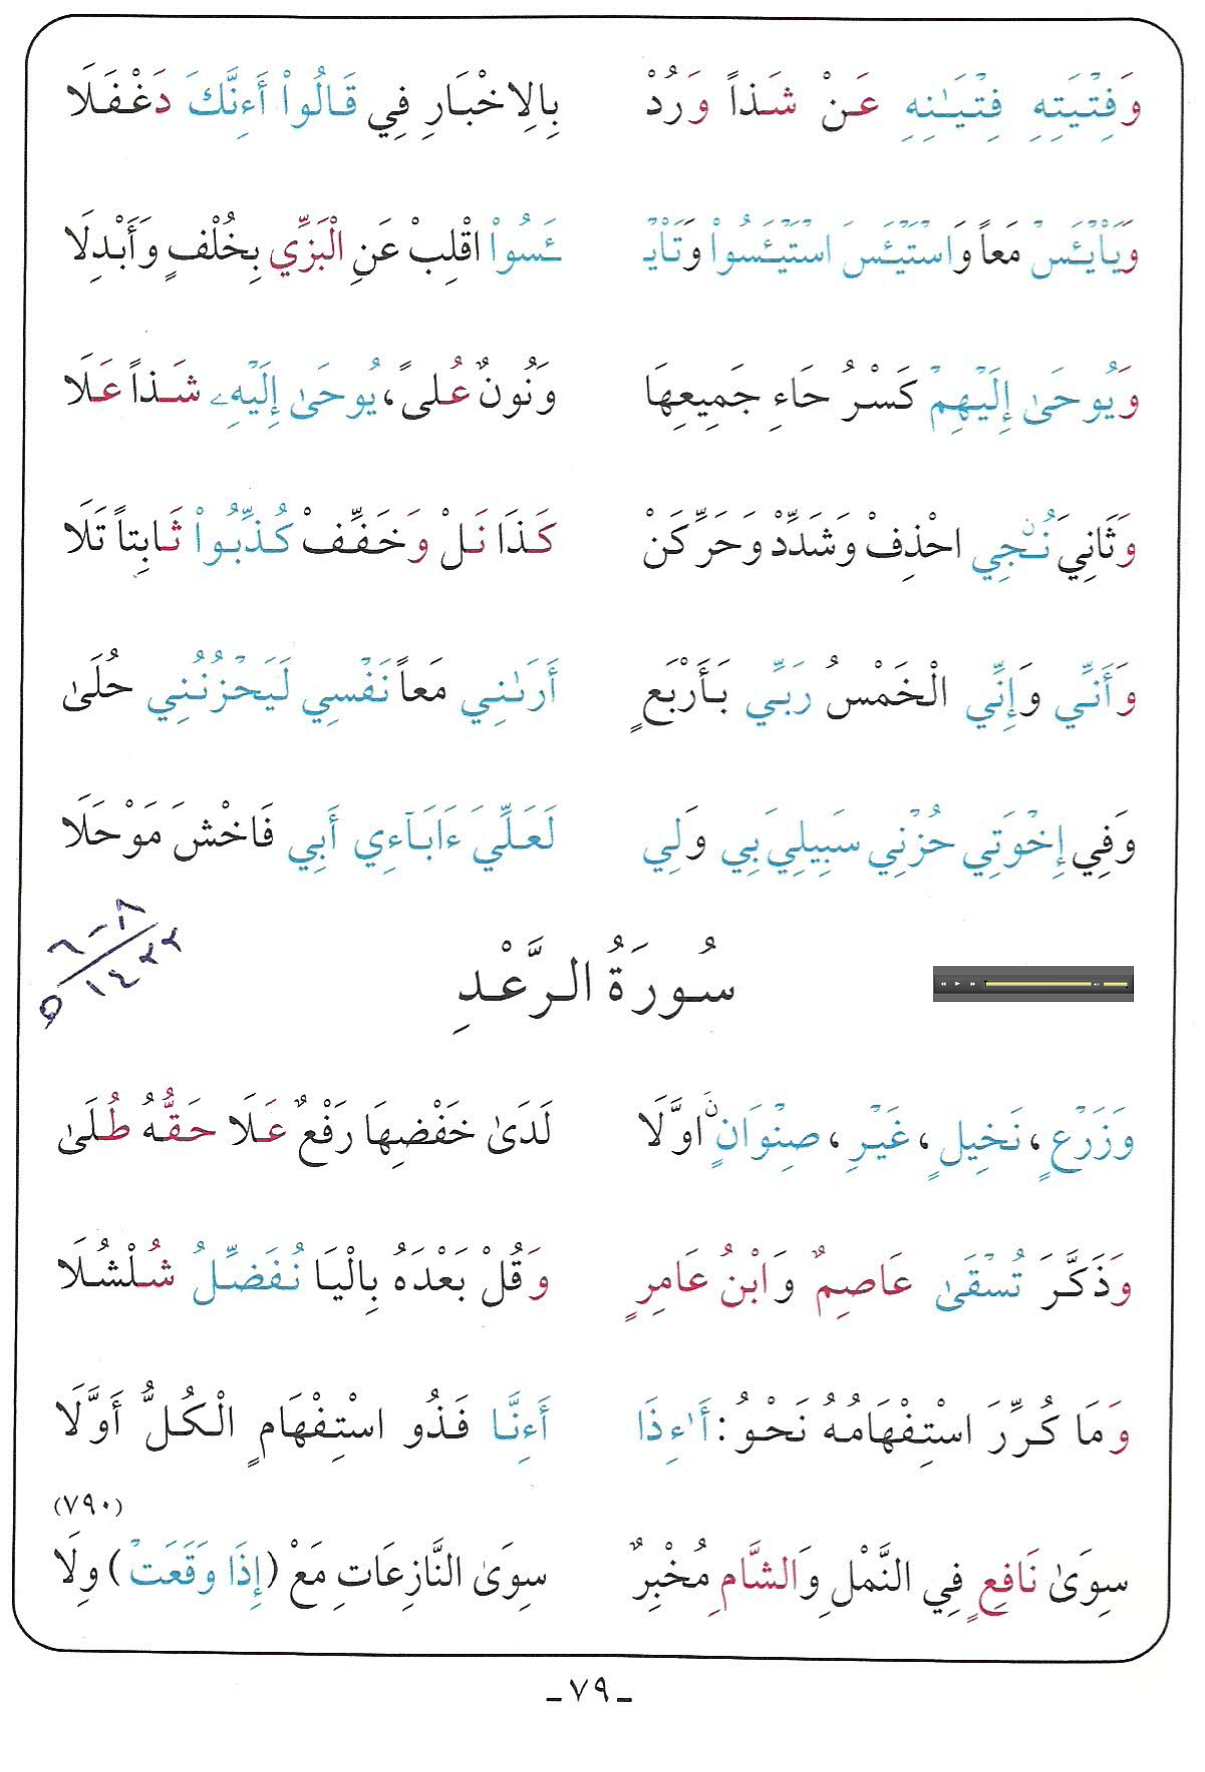 وَفِتْيَتِهِ فِتْيَـٰنِهِ عَنْ شَذاً وَرُدْ بِالِاخْبَارِ فِي قَالُواْ أَءِنَّكَ دَغْفَلَا
وَيَاْيْـَٔسْ مَعاً وَاسْتَيْـَٔسَ اسْتَيْـَٔسُواْ وَتَاْيْـ ـَٔسُواْ اقْلِبْ عَنِ الْبَزِّي بِخُلْفٍ وَأَبْدِلَا
وَيُوحَىٰ إِلَيْهِمْ كَسْرُ حَاءِ جَمِيعِهَا وَنُونٌ عُلىً، يُوحَىٰ إِلَيْهِۦ شَذاً عَلَا
وَثَانِيَ نُـۨجِي احْذِفْ وَشَدِّدْ وَحَرِّكَنْ كَذَا نَلْ وَخَفِّفْ كُذِّبُواْ ثَابِتاً تَلَا
وَأَنِّي وَإِنِّي الْخَمْسُ رَبِّي بَأَرْبَعٍ أَرَىٰنِي مَعاً نَفْسِي لَيَحْزُنُنِي حُلَىٰ
وَفِي إِخْوَتِي حُزْنِي سَبِيلِيَ بِي وَلِي لَعَلِّيَ ءَابَآءِي أَبِي فَاخْشَ مَوْحَلَا
٨-٦
١٤٣٢
ه
سُورَةُ الرَّعْدِ
وَزَرْعٍ، نَخِيلٍ، غَيْرِ، صِنْوَانٍ ۨاوَّلَا لَدَىٰ خَفْضِهَا رَفْعٌ عَلَا حَقُّهُ طُلَىٰ
وَذَكَّرَ تُسْقَىٰ عَاصِمٌ وَابْنُ عَامِرٍ وَقُلْ بَعْدَهُ بِالْيَا نُفَضِّلُ شُلْشُلَا
وَمَا كُرِّرَ اسْتِفْهَامُهُ نَحْوُ: أَ•ءِذَا أَءِنَّا فَذُو اسْتِفْهَامٍ الْكُلُّ أَوَّلَا
(٧٩٠)
سِوَىٰ نَافِعٍ فِي النَّمْلِ وَالشَّامِ مُخْبِرٌ سِوَىٰ النَّازِعَاتِ مَعْ (إِذَا وَقَعَتْ) وِلَا
-٧٩-